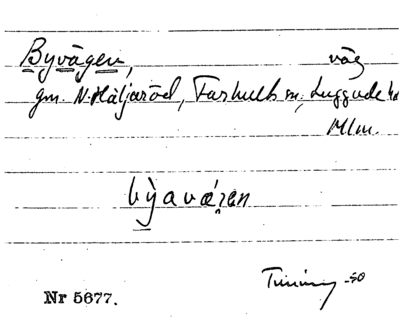 Byvägen, väg
gm. N. Häljaröd, Farhult sn, Luggude hd
Mlm.
bỳavä́ɹen
-50
Nr 5677.